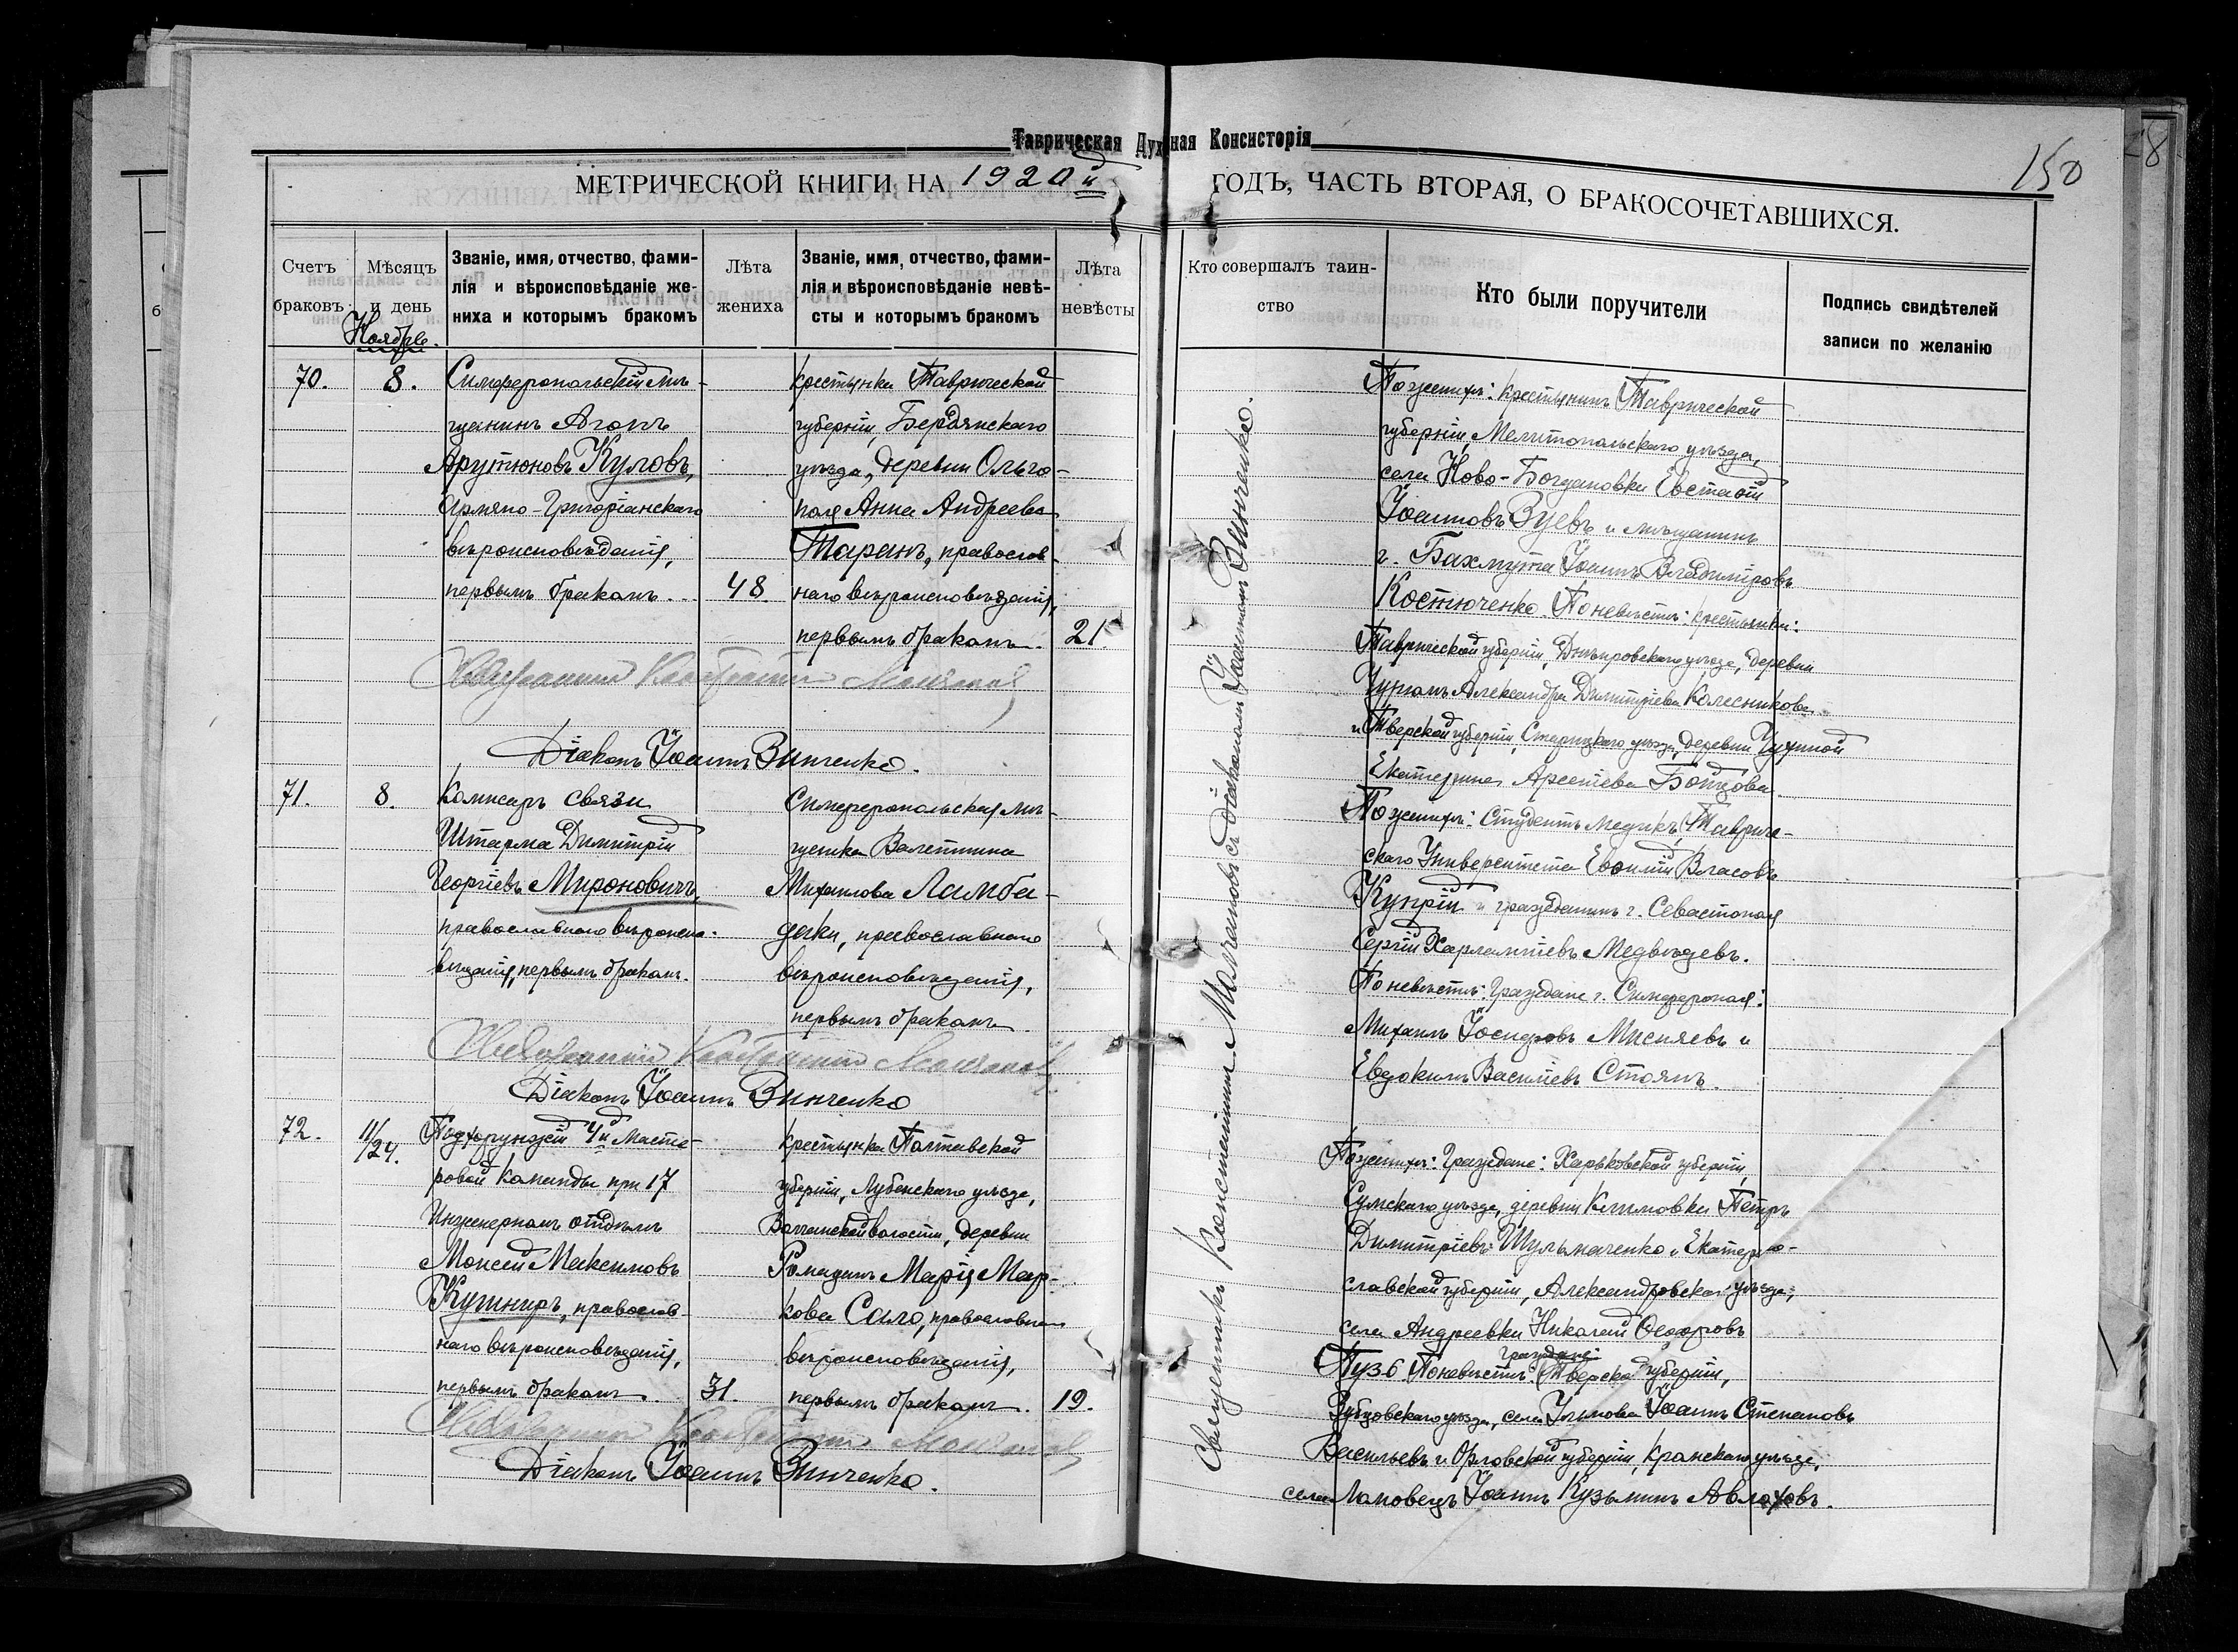 Таврическая Духовная Консисторія
150
МЕТРИЧЕСКОЙ КНИГИ НА 1920й ГОДЪ, ЧАСТЬ ВТОРАЯ, О БРАКОСОЧЕТАВШИХСЯ.
Счетъ браковъ
Мѣсяцъ и день
Званіе, имя, отчество, фами-
лія и вѣроисповѣданіе же-
ниха и которымъ бракомъ
Лѣта жениха
Званіе, имя, отчество, фами-
лія и вѣроисповѣданіе невѣ-
сты и которымъ бракомъ
Лѣта невѣсты
Кто совершалъ таин-
ство
Кто были поручители
Подпись свидѣтелей
записи по желанію
Ноябрь.
70.
8.
Симферопольскій мѣ-
щанинъ Агопъ
Арутюновъ Куловъ,
Армяно-Григоріанскаго
вѣроисповѣданія,
первымъ бракомъ
48.
крестьянка Таврической
губерніи, Бердянскаго
уѣзда, деревни Ольго-
поля Анна Андреева
Таранъ, православ-
наго вѣроисповѣданія,
первымъ бракомъ.
21.
Діаконъ Іоаннъ Зинченко.
71.
8.
Комисаръ связи
Штарма Димитрій
Георгіевъ Мироновичъ,
православнаго вѣроиспо-
вѣданія, первымъ бракомъ.
Симферопольская мѣ-
щанка Валентина
Михаилова Ламба-
даки, православнаго
вѣроисповѣданія,
первымъ бракомъ.
Діаконъ Іоаннъ Зинченко
72.
11/24.
Подхорунжій 4й Масте-
ровой Команды при 17
Инженерномъ отдѣлѣ
Моисей Максимовъ
Кушниръ, православ-
наго вѣроисповѣданія,
первымъ бракомъ.
31.
крестьянка Полтавской
губерніи, Лубенскаго уѣзда,
волости, деревни
Марія Мар-
кова Сало, православнаго
вѣроисповѣданія,
первымъ бракомъ.
19.
Діаконъ Іоаннъ Зинченко.
Священникъ Константинъ Молчановъ съ діакономъ Іоанномъ Зинченко.
По женихѣ: крестьянинъ Таврической
губерніи, Мелитопольскаго уѣзда,
села Ново-Богдановки Евстафій
Іоанновъ Зуевъ и мѣщанинъ
г. Бахмута Іоаннъ Владиміровъ
Костюченко. По невѣстѣ: крестьянки:
Таврической губерніи, Днѣпровскаго уѣзда, деревни
Александра Димитріева Колесникова
и Тверской губерніи, Старицкаго уѣзда, деревни
Екатерина Арсеніева
По женихѣ: Студентъ медикъ Тавриче-
скаго Университета Евфимій Власовъ
Купрій и гражданинъ г. Севастополя
Сергій Харлампіевъ Медвѣдевъ.
По невѣстѣ: Граждане г. Симферополя:
Михаилъ Іосифовъ Мисняевъ и
Евдокимъ Василіевъ Стоянъ.
По женихѣ: Граждане: Харьковской губерніи,
Сумскаго уѣзда, деревни Климовки Петръ
Димитріевъ Шульмаченко и Екатерино-
славской губерніи, Александровскаго уѣзда,
села Андреевки Николай Ѳеодоровъ
граждане:
Пузь По невѣстѣ: Тверской губерніи,
Зубцовскаго уѣзда, села Іоаннъ Степановъ
Васильевъ и Орловской губерніи, Кромскаго уѣзда,
села Іоаннъ Кузьминъ Авлаховъ.